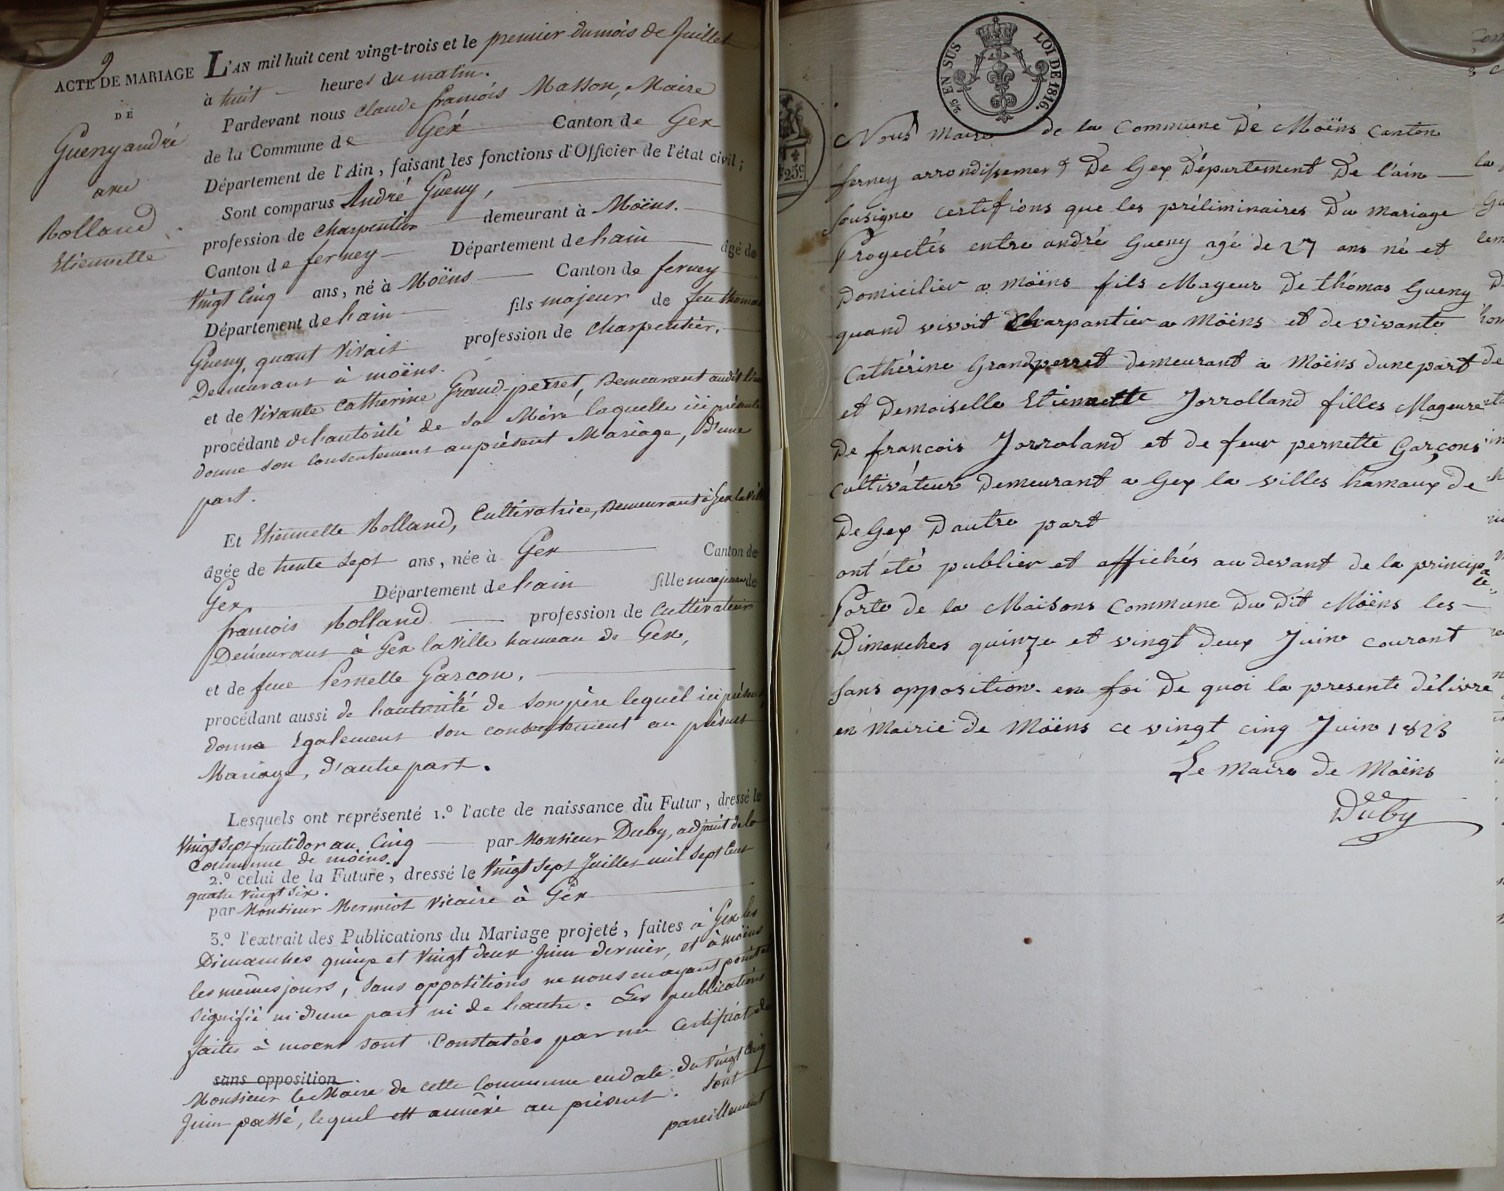 9
ACTE DE MARIAGE
DE
Gueny andré
avec
Rolland
Etiennette
L'AN mil huit cent vingt-trois et le premier du mois de Juillet
à huit heures du matin.
Pardevant nous claude françois Masson, Maire
de la Commune de Géx Canton de Gex
Département de l'Ain, faisant les fonctions d'Officier de l'état civil;
Sont comparus André Gueny,
profession de charpentier demeurant à Moëns.
Canton de ferney Département de l'ain âgé de
vingt cinq ans, né à Moëns Canton de ferney
Département de l'ain fils majeur de feu thomas
Gueny, quant vivait profession de charpentier.
Demeurant à moëns.
et de vivante Catherine Grand-perret, Demeurant audit lieu
procédant de l'autorité de sa Mère laquelle ici présente
donne son consentement au présent Mariage, d'une
part.
Et Etiennette Rolland, Cultivatrice, Demeurant à Gex la ville
âgée de trente sept ans, née à Gex Canton de
Gex Département de l'ain fille majeure de
françois Rolland profession de cultivateur
Demeurant à Gex la ville hameau de Gex,
et de feue Pernette Garcon,
procédant aussi de l'autorité de son père lequel ici présent
donne également son consentement au présent
Mariage, d'autre part.
Lesquels ont représenté 1.º l'acte de naissance du Futur, dressé le
vingt sept fructidor an cinq par Monsieur Duby, adjoint de la
Commune de moëns.
2.º celui de la Future, dressé le vingt sept Juillet mil sept cent
quatre vingt six.
par Monsieur Mermiot vicaire à Géx
3.º l'extrait des Publications du Mariage projeté, faites à Gex les
Dimanches quinze et vingt deux Juin dernier, et à moëns
les mêmes jours, sans oppositions ne nous en ayant point été
signifié ni d'une part ni de l'autre. Les publications
faites à moens sont constatées par un certificat de
sans opposition
Monsieur le Maire de cette Commune en date du vingt cinq
Juin passé, lequel est annéxé au présent. sont
pareillement
25 EN SUS LOI DE 1816.
Nous Maire de la Commune De Moëns Canton
ferney arrondissement De Gex Département De l'ain
sousigne certifions que les préliminaires Du mariage
Progectés entre andré Gueny agé de 27 ans né et
Domicilier a moëns fils Mageur De thomas Gueny
quand vivoit Charpantier a Möens et de vivante
Cathérine Grandperret demeurant a Moëns dune part
et Demoiselle Etiennette Jorrolland filles Mageure
De francois Jorroland et de feur pernette Garçons
cultivateur demeurant a Gex la villes hamaux de
De Gex Dautre part
ont été publier et affichés au devant de la principale
Porte de la Maisons Commune Du dit Moëns les
Dimanches quinze et vingt deux Juin courant
sans opposition. en foi De quoi la presente délivre
en Mairie de Moëns ce vingt cinq Juin 1823
Le Maire de Moëns
Duby